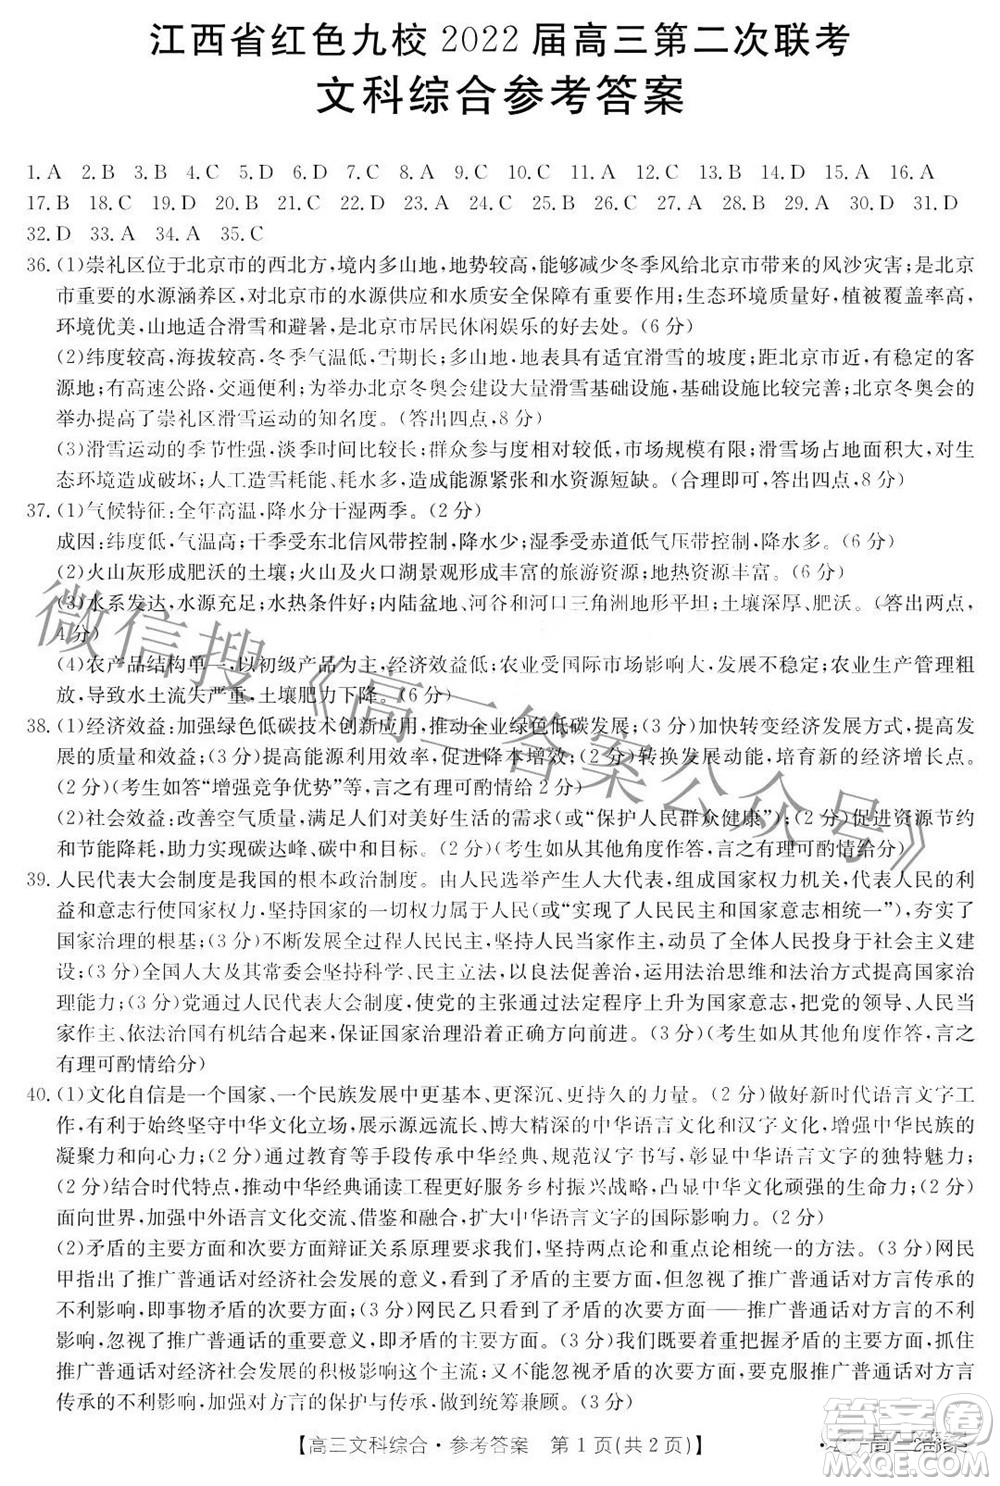 江西省红色九校 2022 届高三第二次联考
文科综合参考答案
1. A 2. B 3. B 4. C 5. D 6. D 7. B 8. A 9. C 10. C 11. A 12. B 13. C 14. D 15. A 16. A
17. B 18. C 19. D 20. B 21. C 22. D 23. A 24. D 25. B 26. C 27. C 28. B 29. A 30. D 31. D
32. D 33. A 34. A 35. C
36. (1)崇礼区位于北京市的西北方,境内多山地,地势较高,能减少冬季风给北京市带来的风沙灾害;是北京
市重要的水源涵养区,对北京的水源供应和水质安全保障有重大影响;生态环境质量好,植被覆盖率高,
环境优美,山地适合滑雪和避暑,是北京市居民休闲娱乐的好去处。(6 分)
(2)纬度较高,海拔较高,冬季气温低,雪期长;多山地,地形上具有适宜滑雪的坡度;距北京市近,有稳定的客
源地;有高速公路,交通便利;为北京冬奥会建设了大量滑雪基础设施,基础设施比较完善;北京冬奥会的
举办提高了崇礼区滑雪运动的知名度。(答出四点,8 分)
(3)滑雪运动的季节性强,淡季时间比较长;群众参与的基础比较薄弱,市场规模有限;滑雪场占地面积广,对生
态环境造成破坏;人工造雪耗能、耗水多,造成能源紧张和水资源短缺。(合理即可,8 分)
37. (1)气候特征:全年高温,降水分干湿两季。(2 分)
成因:纬度低,气温高;干季受东北信风带控制,降水少;湿季受赤道低气压带控制,降水多。(6 分)
(2)火山灰形成肥沃的土壤;火山及火口湖景观形成丰富的旅游资源;地热资源丰富。(6 分)
(3)水系发达,水源充足;水热条件好;内陆盆地、河谷和河口三角洲地形平坦;土壤深厚、肥沃。(答出两点,
4 分)
(4)农产品结构单一,以初级产品为主,经济效益低;农业受国际市场影响大,发展不稳定;农业生产管理粗
放,导致水土流失严重,土壤肥力下降。(6 分)
38. (1)经济效益:加强绿色低碳技术创新应用,推动企业绿色低碳发展;(3 分)加快转变经济发展方式,提高发
展质量;(2 分)提高能源利用效率,促进降本增效;(2 分)转换发展动能,培育新的经济增长点。(2
分)(考生如答“增强竞争优势”等,言之有理可酌情给 2 分)
(2)社会效益:改善空气质量,满足人们对美好生活的需求(或“保护人民群众健康”);(2 分)促进资源节约
和节能降耗,助力实现碳达峰、碳中和目标。(2 分)(考生如从其他角度作答,言之有理可酌情给分)
39. 人民代表大会制度是我国的根本政治制度。由人民选举产生人大代表,组成国家权力机关,代表人民的利
益和意志行使国家权力,坚持国家的一切权力属于人民(或“实现了人民民主和国家意志相统一”),夯实了
国家治理的根基;(3 分)不断发展全过程人民民主,坚持人民当家作主,动员了全体人民投身于社会主义建
设;(3 分)全国人大及其常委会坚持科学、民主立法,以良法促善治,运用法治思维和法治方式提高国家治
理能力;(3 分)党通过人民代表大会制度,使党的主张通过法定程序上升为国家意志,把党的领导、人民当
家作主、依法治国有机结合起来,保证国家治理的正确方向。(3 分)(考生如从其他角度作答,言之
有理可酌情给分)
40. (1)文化自信是一个国家、一个民族发展中更基本、更深沉、更持久的力量。(2 分)做好新时代语言文字工
作,有利于始终坚守中华文化立场,展示源远流长、博大精深的中华语言文化和汉字文化,增强中华民族的
凝聚力和向心力;(2 分)通过教育等手段传承中华经典、规范汉字书写,彰显中华语言文字的独特魅力;
(2 分)结合时代特点,推进中华经典诵读工程更好服务乡村振兴战略,凸显中华文化的生命力;(2 分)
面向世界,加强中外语言文化交流、借鉴和融合,扩大中华语言文字的国际影响力。(2 分)
(2)矛盾的主要方面和次要方面辩证关系原理要求我们,坚持两点论和重点论相统一。(3 分)网民
甲指出了推广普通话对经济社会发展的意义,忽视了事物矛盾的另一方面,即推广普通话对方言传承的不
利影响,即事物矛盾的次要方面;(3 分)网民乙只看到了矛盾的次要方面——推广普通话对方言的不利
影响,忽视了推广普通话的重要意义,即矛盾的主要方面。(3 分)我们既要着重把握矛盾的主要方面,抓住
推广普通话对经济社会发展的积极影响这个主流;又不忽略矛盾的次要方面,要克服推广普通话对方言
传承的不利影响,做好方言的保护与传承,做到统筹兼顾。(3 分)
【高三文科综合·参考答案 第 1 页(共 2 页)】
微信搜《高三答案公众号》